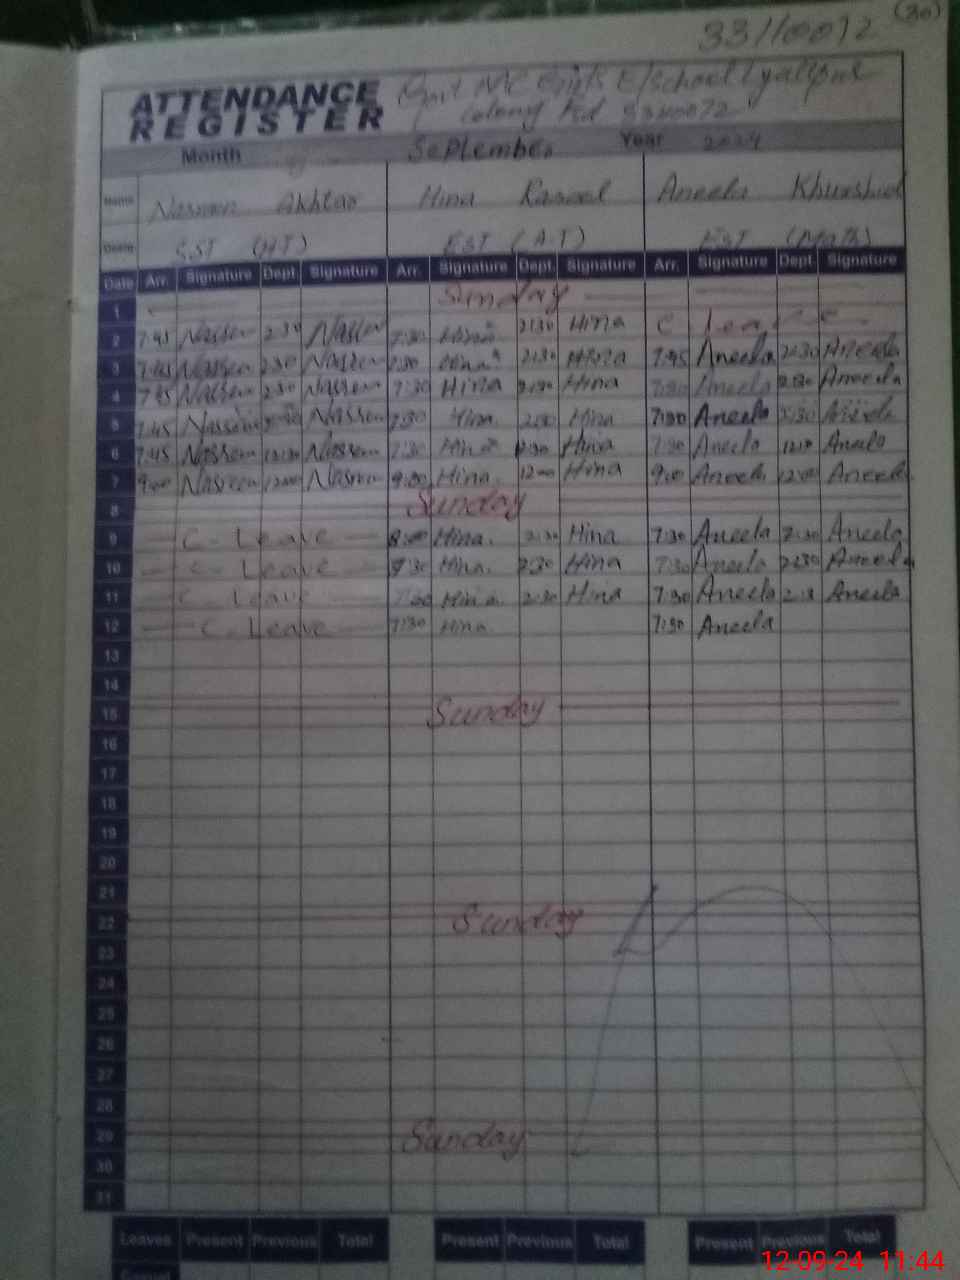 (30)
33110072
ATTENDANCE
REGISTER
Govt MC Girls E/School Lyallpur
Colony Fsd 33110072
Month September Year 2024
Name Nasreen Akhtar Hina Rasool Aneela Khurshid
SST (HT) EST (A.T) EST (Math)
Date Arr. Signature Dept. Signature Arr. Signature Dept. Signature Arr. Signature Dept. Signature
1 Sunday
2 7:45 Nasreen 2:30 Nasreen 7:30 Hina 2:30 Hina C Leave
3 7:45 Nasreen 2:30 Nasreen 7:30 Hina 2:30 Hina 7:45 Aneela 2:30 Aneela
4 7:45 Nasreen 2:30 Nasreen 7:30 Hina 2:30 Hina 7:30 Aneela 2:30 Aneela
5 7:45 Nasreen Nasreen 7:30 Hina 2:30 Hina 7:30 Aneela 2:30 Aneela
6 7:45 Nasreen 12:30 Nasreen 7:30 Hina Hina 7:30 Aneela Aneela
7 9:00 Nasreen 12:00 Nasreen 9:00 Hina 12:00 Hina 9:00 Aneela 12:00 Aneela
8 Sunday
9 C- Leave Hina 2:30 Hina 7:30 Aneela 2:30 Aneela
10 C- Leave 7:30 Hina 2:30 Hina 7:30 Aneela 2:30 Aneela
11 C Leave Hina 2:30 Hina 7:30 Aneela Aneela
12 C- Leave 7:30 Hina 7:30 Aneela
13
14
15 Sunday
16
17
18
19
20
21
22 Sunday
23
24
25
26
27
28
29 Sunday
30
31
Leaves Present Previous Total Present Previous Total Present Previous Total
12-09-24 11:44